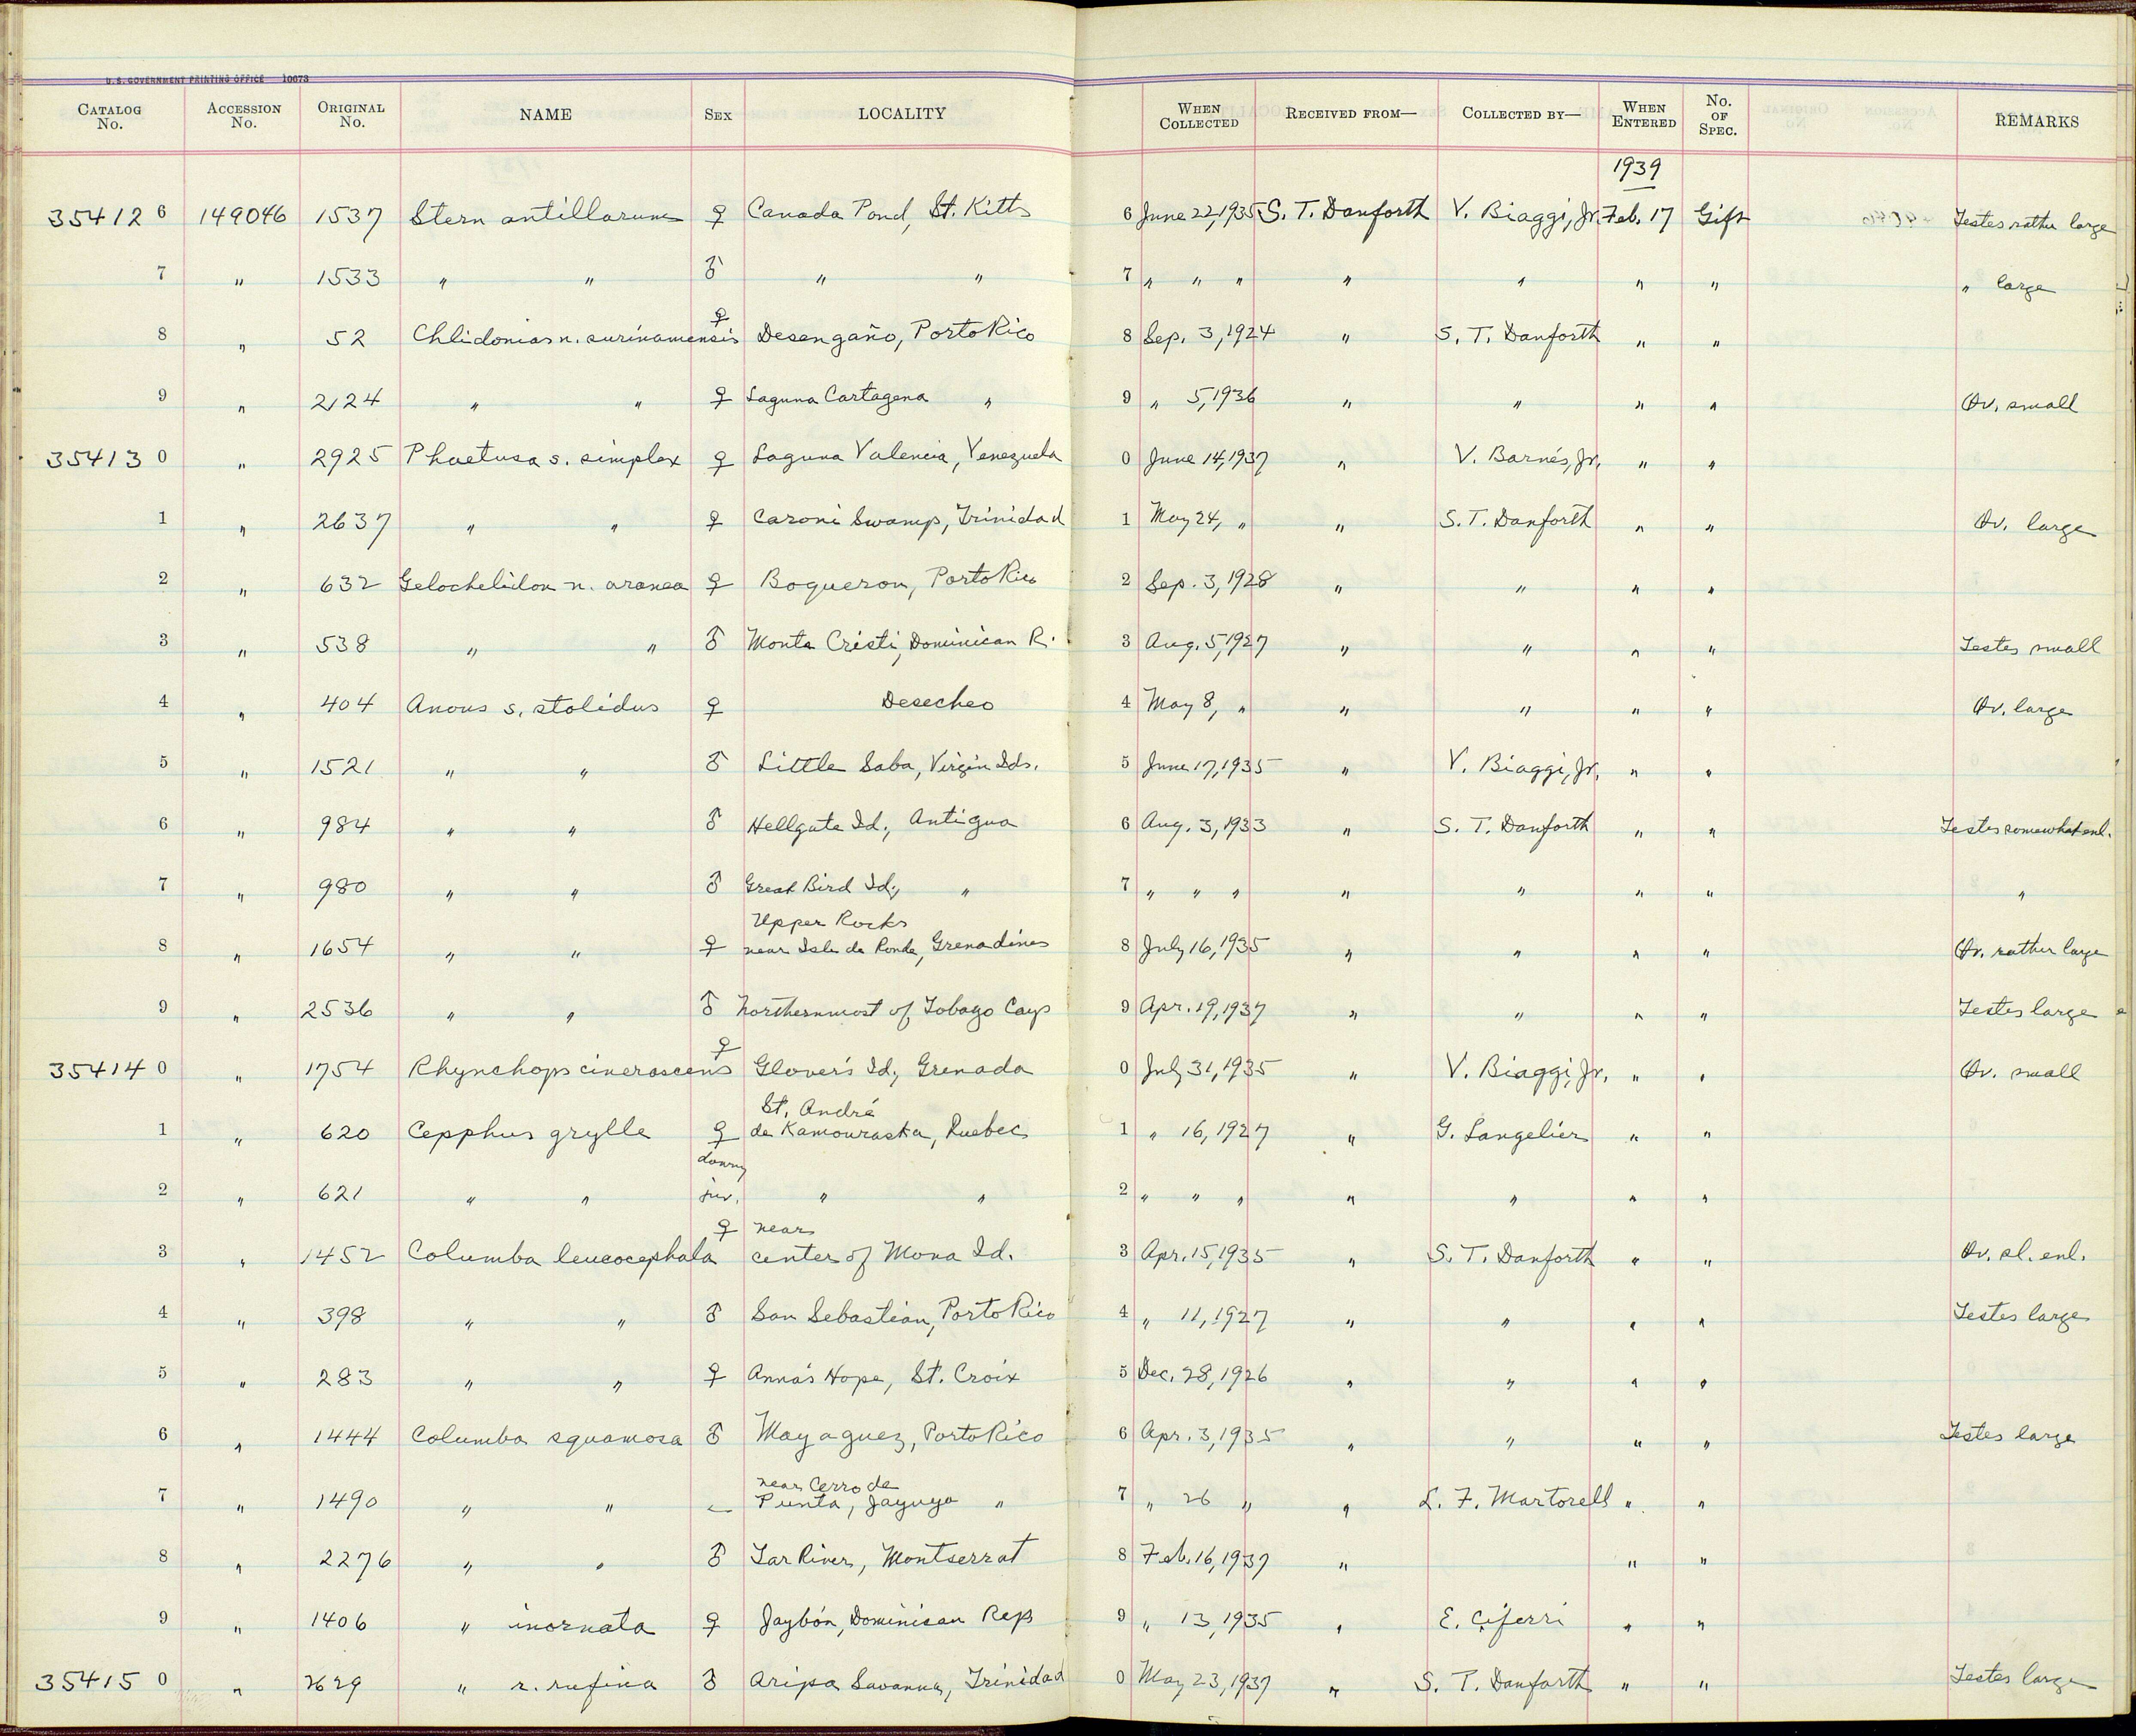 U. S. GOVERNMENT PRINTING OFFICE 10673
CATALOG No. ACCESSION No. ORIGINAL No. NAME SEX LOCALITY WHEN COLLECTED RECEIVED FROM— COLLECTED BY— WHEN ENTERED No. OF SPEC. REMARKS
1939
35412 6 149046 1537 Stern antillarum ♀ Canada Pond, St. Kitts 6 June 22, 1935 S. T. Danforth V. Biaggi, Jr. Feb. 17 Gift Testes rather large
7 " 1533 " " ♂ " " 7 " " " " " " " " large
8 " 52 Chlidonias n. surinamensis ♀ Desengaño, Porto Rico 8 Sep. 3, 1924 " S. T. Danforth " "
9 " 2124 " " ♀ Laguna Cartagena " 9 " 5, 1936 " " " " Ov. small
35413 0 " 2925 Phaetusa s. simplex ♀ Laguna Valencia, Venezuela 0 June 14, 1937 " V. Barnés, Jr. " "
1 " 2637 " " ♀ Caroni Swamp, Trinidad 1 May 24, " " S. T. Danforth " " Ov. large
2 " 632 Gelochelidon n. aranea ♀ Boqueron, Porto Rico 2 Sep. 3, 1928 " " " "
3 " 538 " " ♂ Monte Cristi, Dominican R. 3 Aug. 5, 1927 " " " " Testes small
4 " 404 Anous s. stolidus ♀ Desecheo 4 May 8, " " " " " Ov. large
5 " 1521 " " ♂ Little Saba, Virgin Ids. 5 June 17, 1935 " V. Biaggi, Jr. " "
6 " 984 " " ♂ Hellgate Id., Antigua 6 Aug. 3, 1933 " S. T. Danforth " " Testes somewhat enl.
7 " 980 " " ♂ Great Bird Id., " 7 " " " " " " " "
Upper Rocks
8 " 1654 " " ♀ near Isle de Ronde, Grenadines 8 July 16, 1935 " " " " Ov. rather large
9 " 2536 " " ♂ Northernmost of Tobago Cays 9 Apr. 19, 1937 " " " " Testes large
35414 0 " 1754 Rhynchops cinerascens ♀ Glover's Id., Grenada 0 July 31, 1935 " V. Biaggi, Jr. " " Ov. small
St. André
1 " 620 Cepphus grylle ♀ de Kamouraska, Quebec 1 " 16, 1927 " G. Langelier " "
downy
2 " 621 " " juv. " " 2 " " " " " " "
♀ near
3 " 1452 Columba leucocephala center of Mona Id. 3 Apr. 15, 1935 " S. T. Danforth " " Ov. sl. enl.
4 " 398 " " ♂ San Sebastian, Porto Rico 4 " 11, 1927 " " " " Testes large
5 " 283 " " ♀ Anna's Hope, St. Croix 5 Dec. 28, 1926 " " " "
6 " 1444 Columba squamosa ♂ Mayaguez, Porto Rico 6 Apr. 3, 1935 " " " " Testes large
near Cerro de
7 " 1490 " " — Punta, Jayuya " 7 " 26 " " L. F. Martorell " "
8 " 2276 " " ♂ Tar River, Montserrat 8 Feb. 16, 1937 " " "
9 " 1406 " inornata ♀ Jaybón, Dominican Rep 9 " 13, 1935 " E. Ciferri " "
35415 0 " 2629 " r. rufina ♂ Aripa Savanna, Trinidad 0 May 23, 1937 " S. T. Danforth " " Testes large